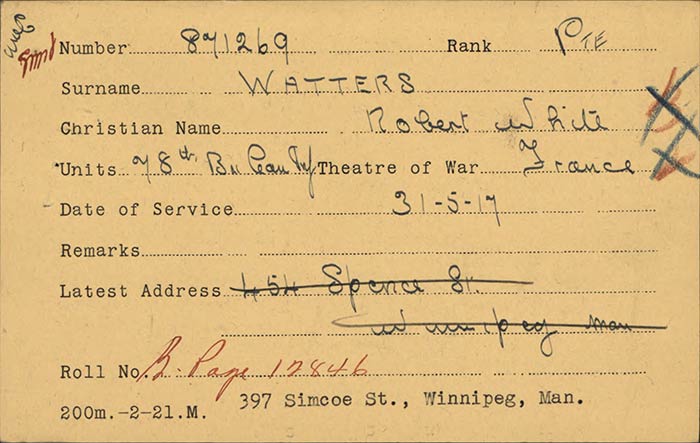 Number 871269 Rank Pte
Surname WATTERS
Christian Name Robert White
Units 78th Bn Can Inf Theatre of War France
Date of Service 31-5-17
Remarks
Latest Address 454 Spence St.
Winnipeg Man
Roll No B. Page 12846
397 Simcoe St., Winnipeg, Man.
200m.-2-21.M.